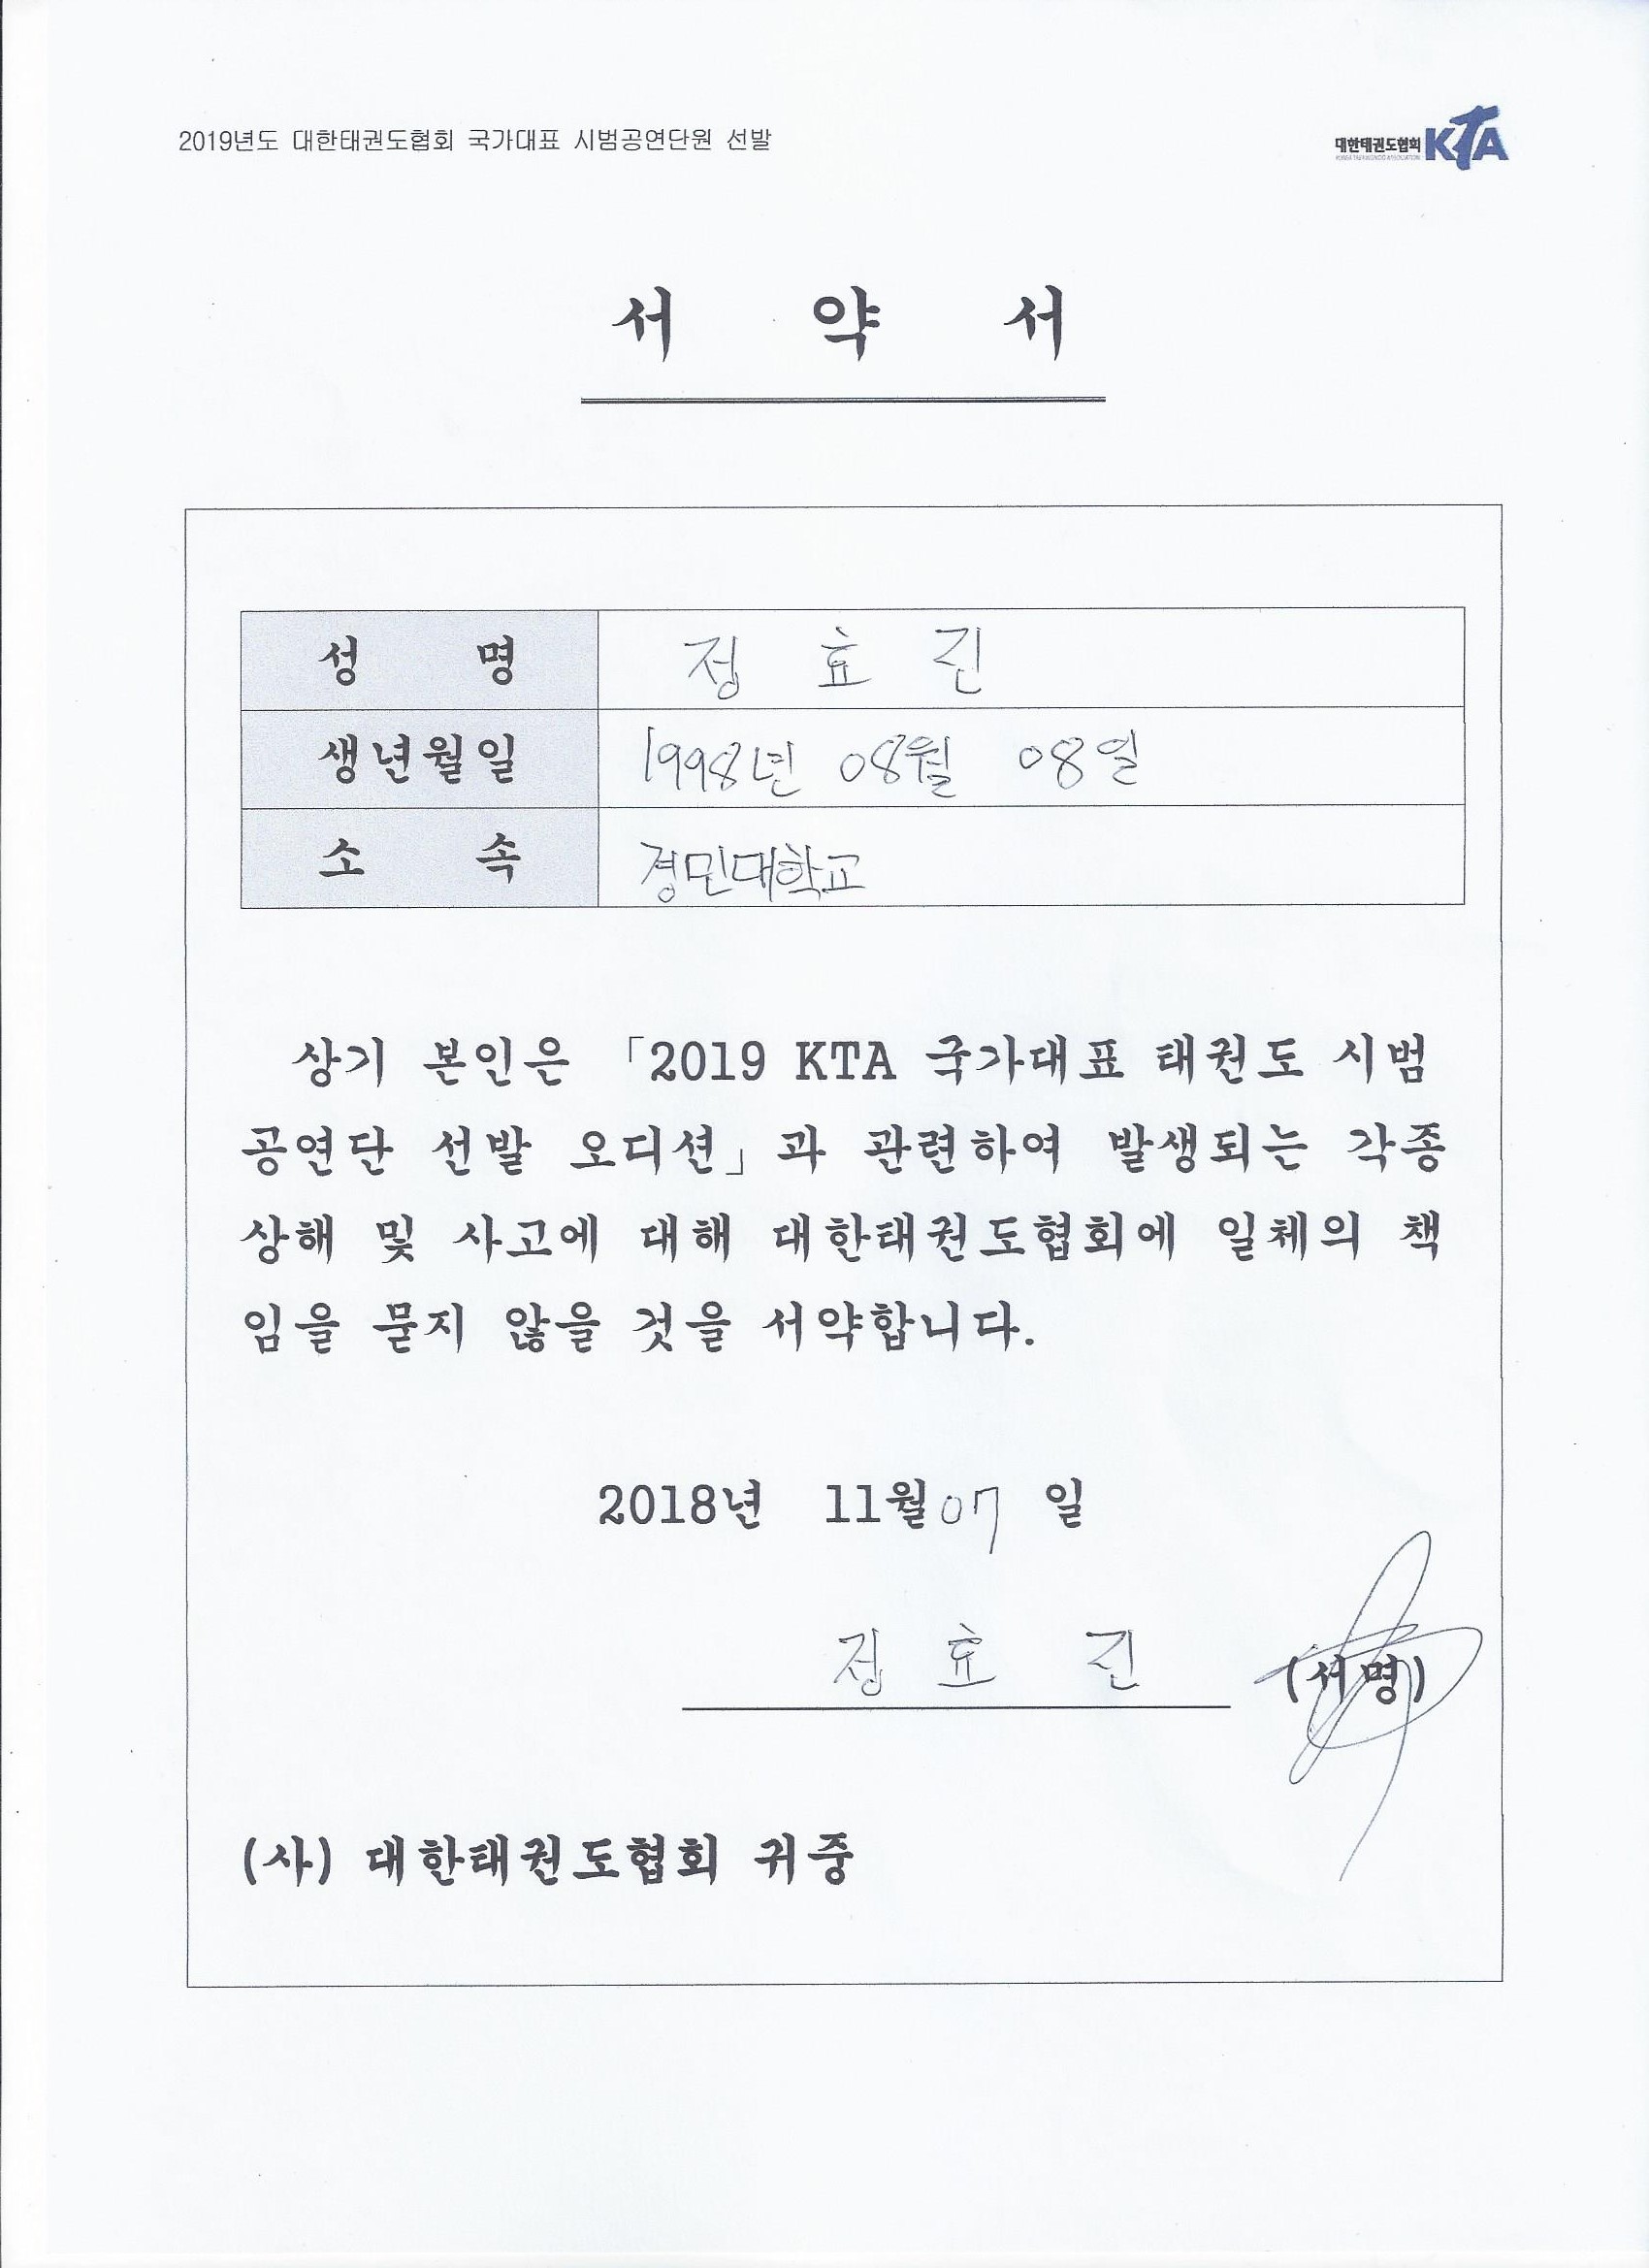 2019년도 대한태권도협회 국가대표 시범공연단원 선발
대한태권도협회 KTA
KOREA TAEKWONDO ASSOCIATION
서 약 서
성 명 정 효 진
생년월일 1998년 08월 08일
소 속 경민대학교
상기 본인은 「2019 KTA 국가대표 태권도 시범
공연단 선발 오디션」과 관련하여 발생되는 각종
상해 및 사고에 대해 대한태권도협회에 일체의 책
임을 묻지 않을 것을 서약합니다.
2018년 11월 07 일
정 효 진 (서명)
(사) 대한태권도협회 귀중